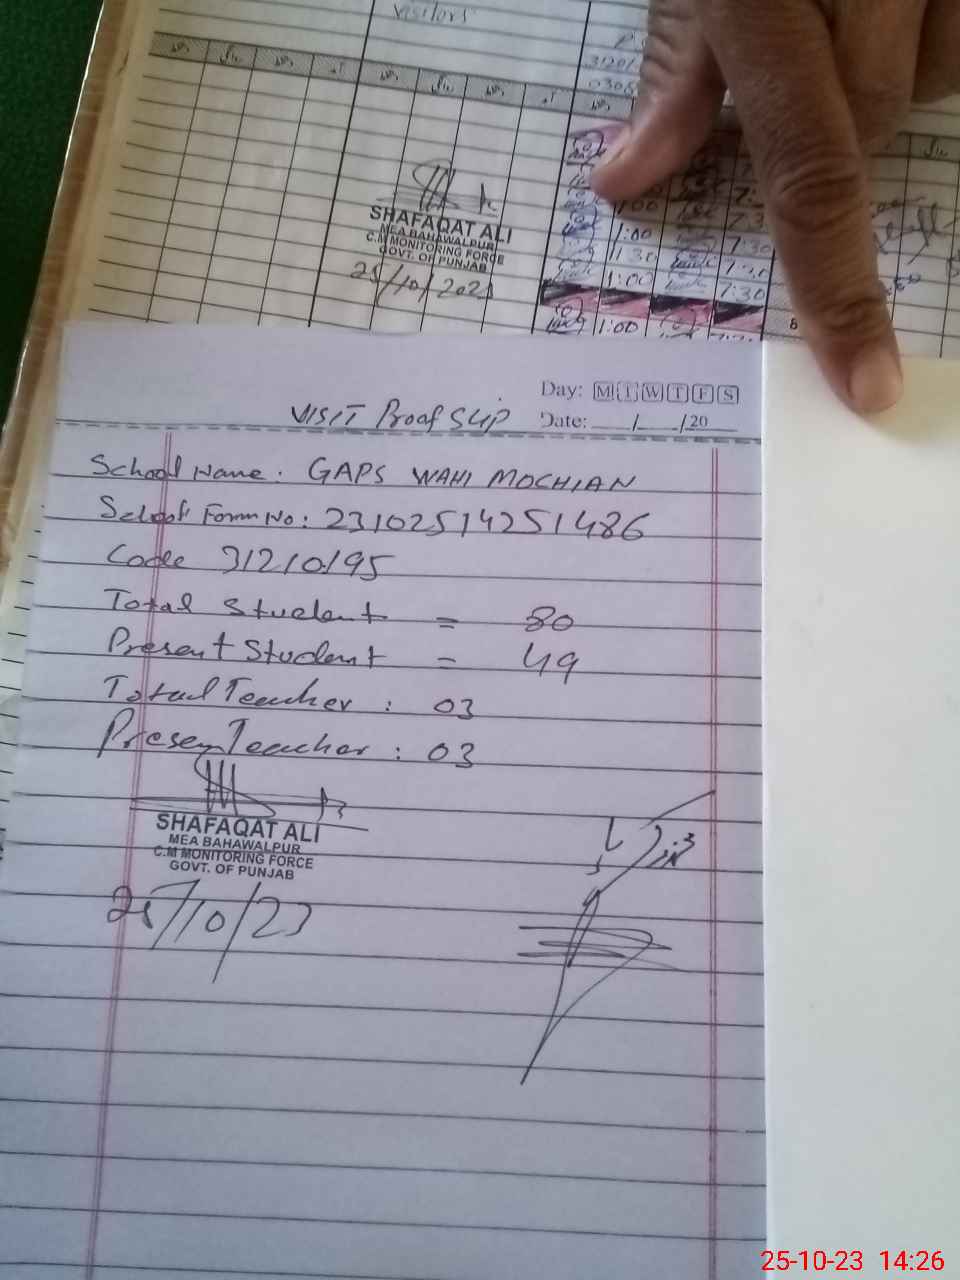 visitors
SHAFAQAT ALI
MEA BAHAWALPUR
C.M MONITORING FORCE
GOVT. OF PUNJAB
25/10/2023
1:00
1:00
7:30
11:30
1:00
7:30
1:00
Day: M T W T F S
Date: ___/___/20
VISIT Proof Slip
School Name: GAPS WAHI MOCHIAN
School Form No: 23102514251486
Code 31210195
Total Student = 80
Present Student = 49
Total Teacher : 03
Present Teacher : 03
SHAFAQAT ALI
MEA BAHAWALPUR
C.M MONITORING FORCE
GOVT. OF PUNJAB
25/10/23
25-10-23 14:26